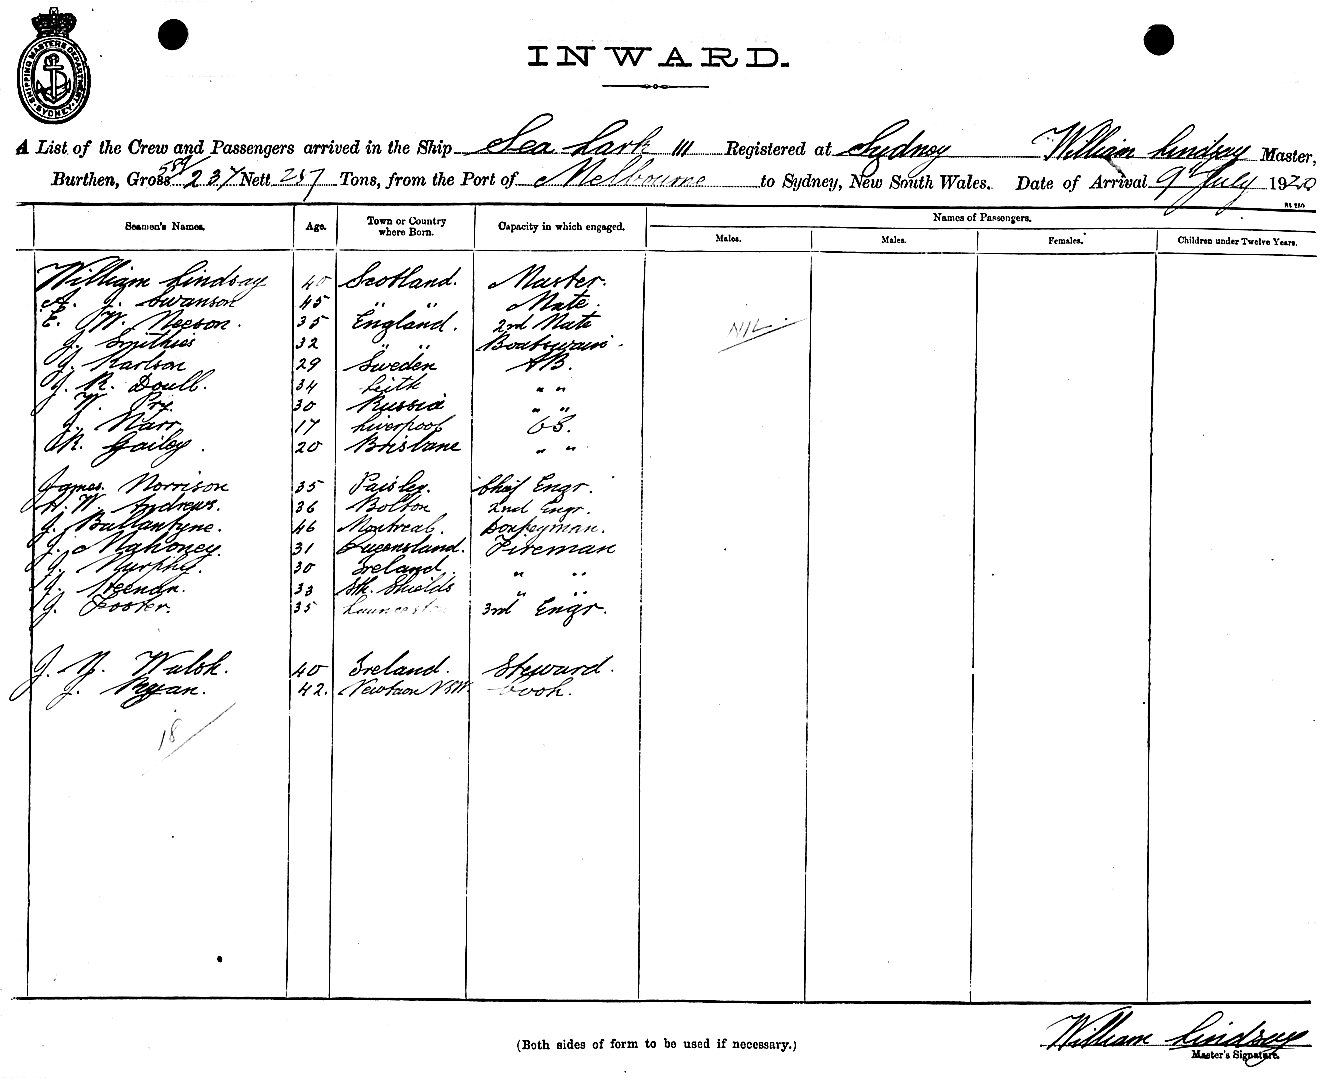 SHIPPING MASTERS DEPARTMENT SYDNEY
INWARD.
A List of the Crew and Passengers arrived in the Ship Sea Lark III Registered at Sydney William Lindsay Master,
Burthen, Gross 237 Nett 237 Tons, from the Port of Melbourne to Sydney, New South Wales. Date of Arrival 9th July 1920
Seamen's Names. Age. Town or Country where Born. Capacity in which engaged. Names of Passengers.
Males. Males. Females. Children under Twelve Years.
William Lindsay 40 Scotland. Master.
A. J. Swanson 45 " " Mate.
E. W. Neeson. 35 England. 2nd Mate NIL.
J. Smithies 32 " " Boatswain.
J. Karlson 29 Sweden AB.
J. R. Doull. 34 Leith " "
W. 30 Russia " "
J. Narr 17 Liverpool OS.
R. Gailey. 20 Brisbane " "
James Morrison 35 Paisley. Chief Engr.
H. W. Andrews. 36 Bolton 2nd Engr.
J. Ballantyne. 46 Montreal. Donkeyman.
J. Mahoney. 31 Queensland. Fireman
J. Murphy. 30 Ireland " "
J. Heenan. 33 Sth. Shields " "
J. Foster. 35 Launceston 3rd Engr.
J. Walsh. 40 Ireland. Steward.
J. Ryan. 42. Newtown NSW. Cook.
18
(Both sides of form to be used if necessary.)
William Lindsay
Master's Signature.